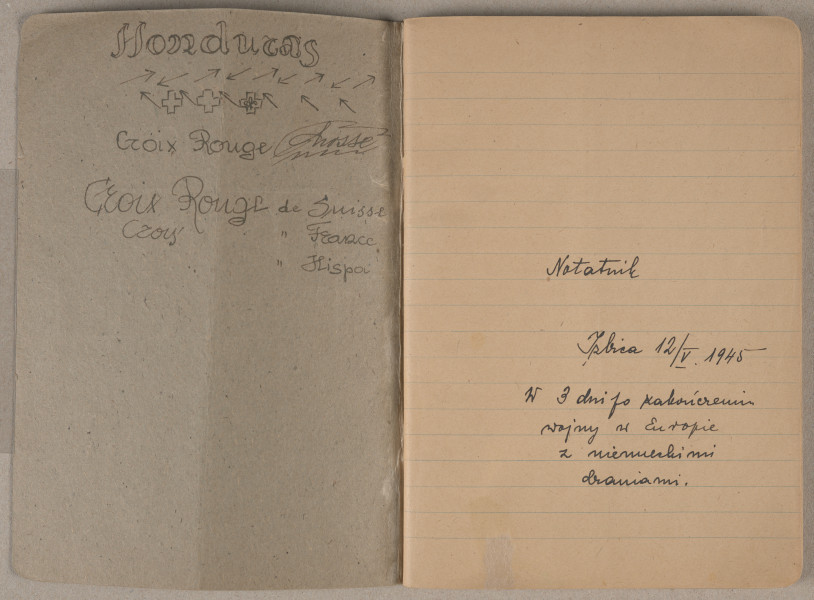 Honduras
Croix Rouge
Croix Rouge de Suisse
Croix " France
" Hispa
Notatnik
Izbica 12/V. 1945
W 3 dni po zakończeniu
wojny w Europie
z niemieckimi
draniami.